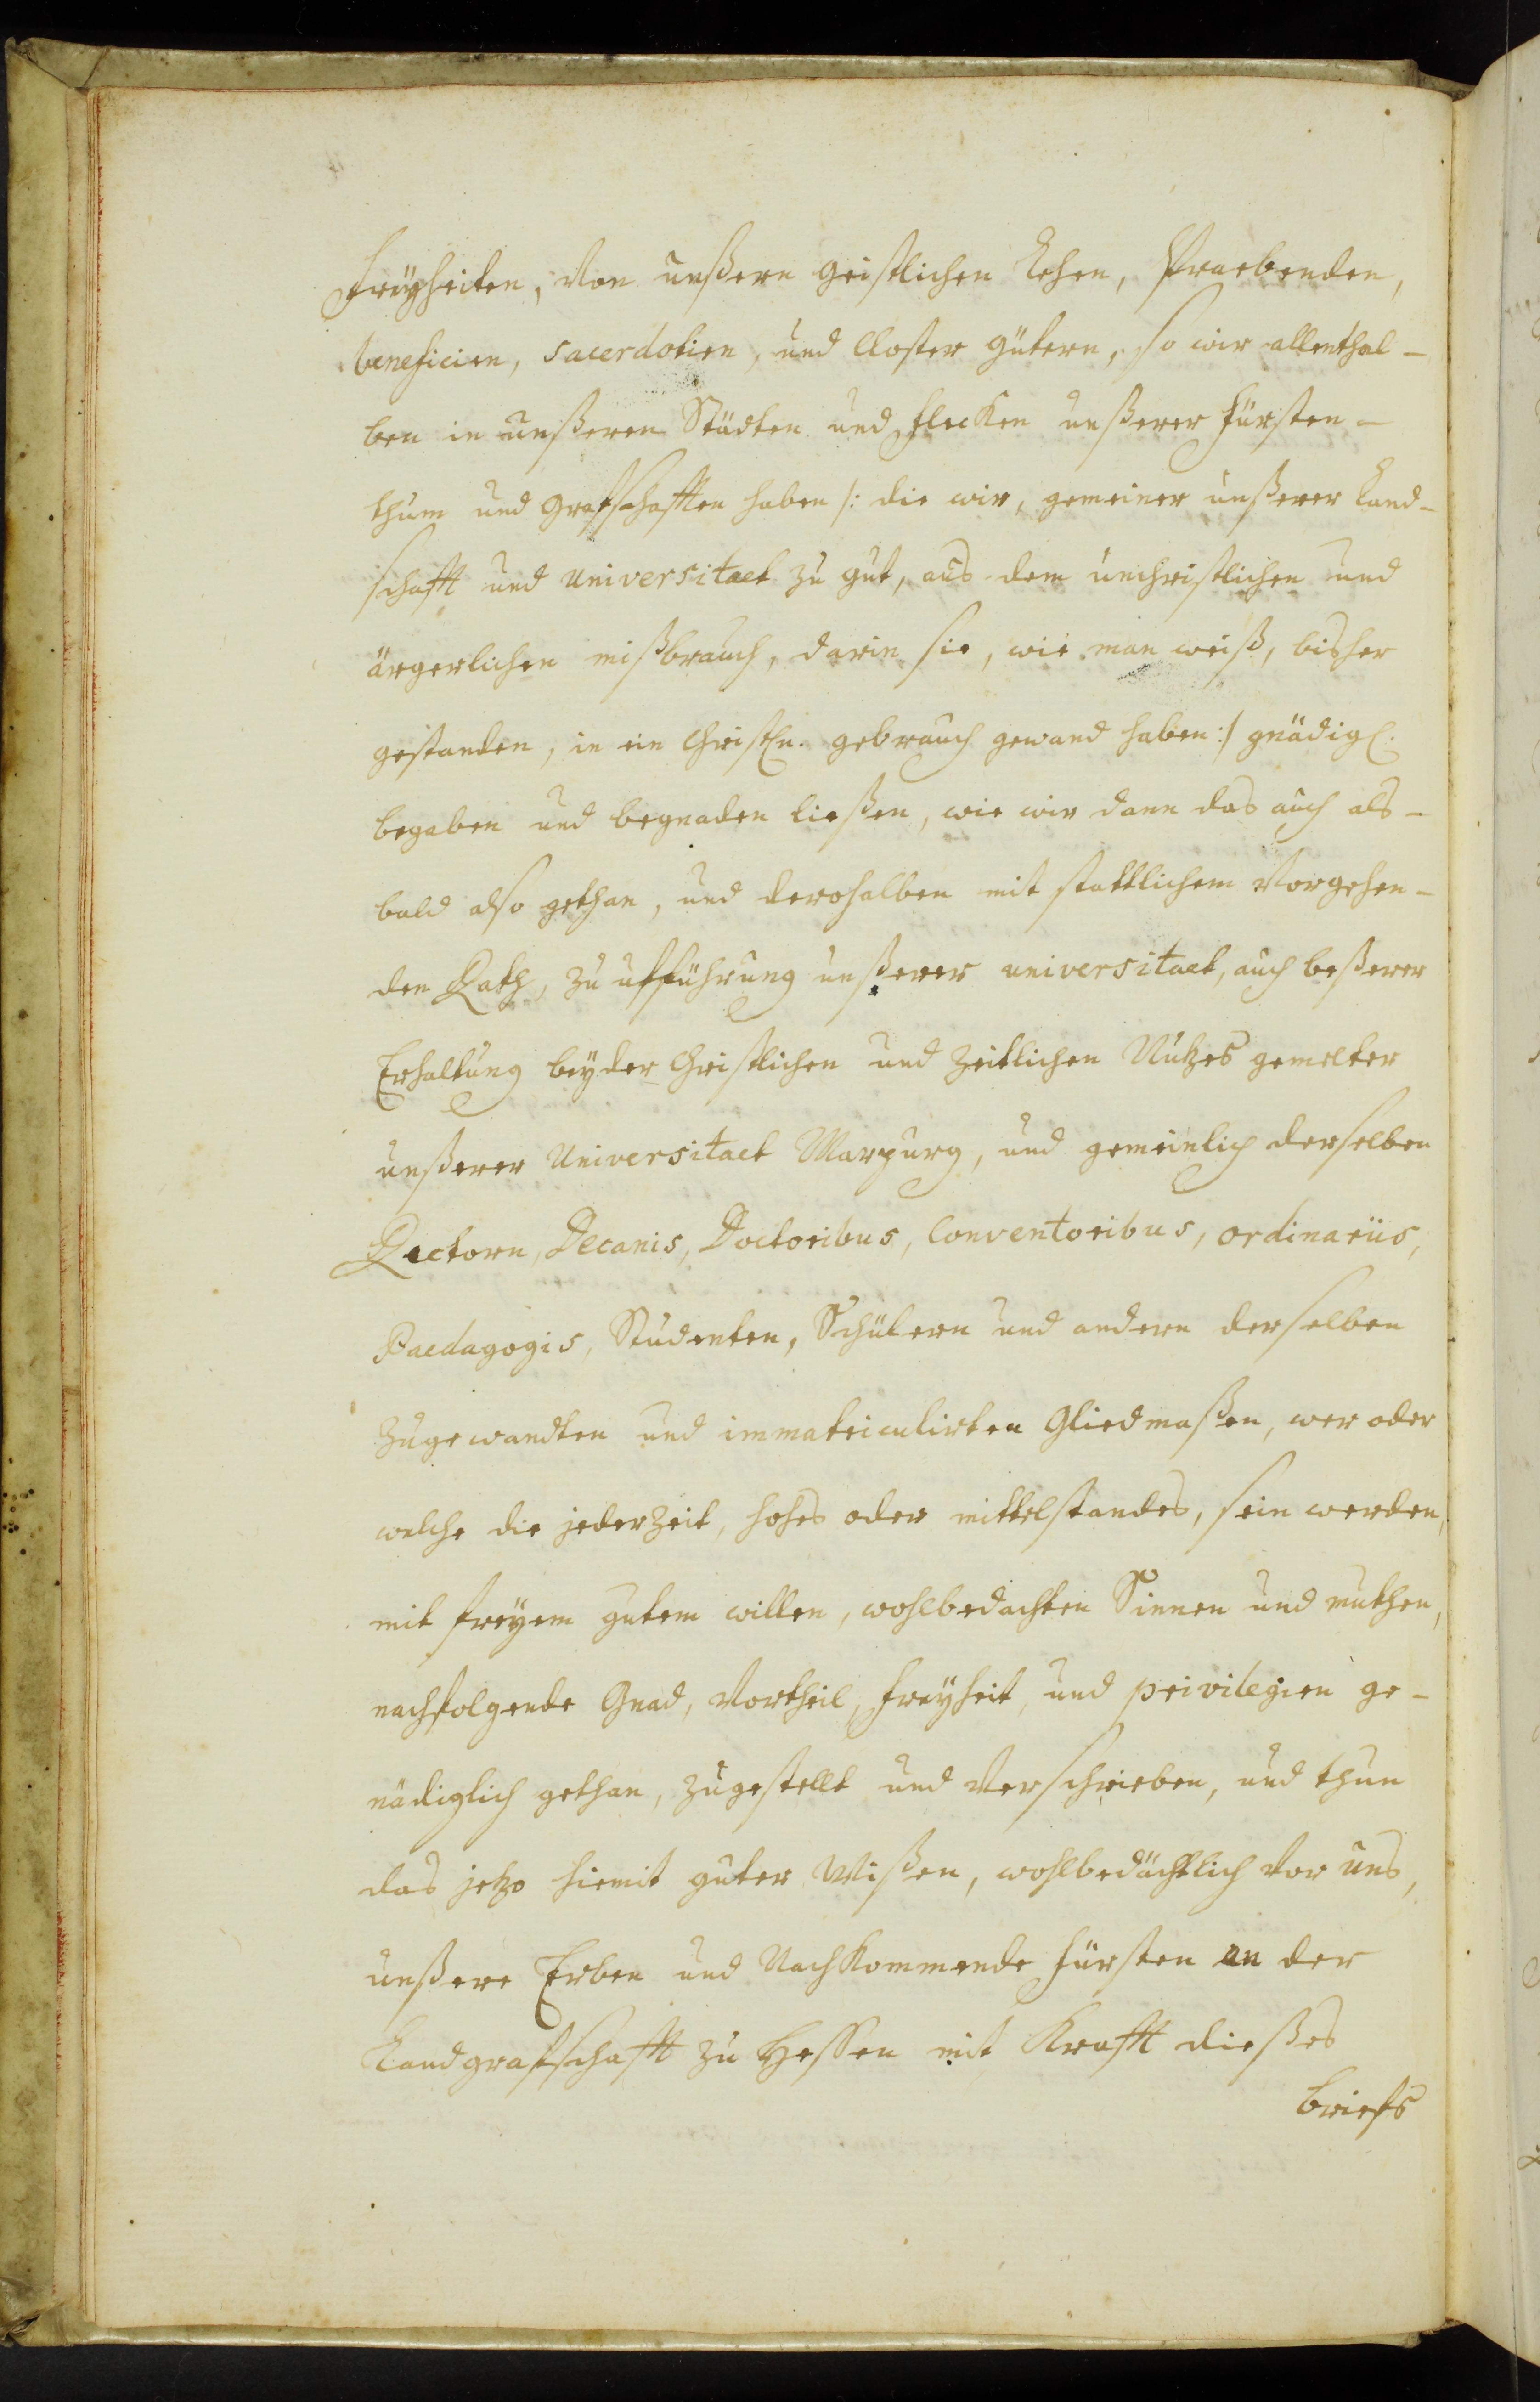 Freyheiten, Von unßern geistlichen Lehen, Praebenden,
beneficien, sacerdotien, und Closter gütern, so wir allenthal-
ben in unßeren Städten und Flecken unßerer Fürsten-
thum und Grafschafften haben /: die wir, gemeiner unßerer Land-
schafft und Universitaet zu gut, aus dem unchristlichen und
ärgerlichen mißbrauch, darin sie, wie man weiß, bisher
gestanden, in ein Christln. gebrauch gewand haben :/ gnädigl.
begaben und begnaden ließen, wie wir dann das auch als-
bald also gethan, und derohalben mit stattlichem Vorgehen-
den Rath, zu ufführung unßerer universitaet, auch beßerer
Erhaltung beyder Christlichen und zeitlichen Nutzes gemelter
unßerer Universitaet Marpurg, und gemeinlich derselben
Rectorn, Decanis, Doctoribus, Conventoribus, ordinariis,
Paedagogis, Studenten, Schülern und andern derselben
zugewandten und immatriculirten Gliedmaßen, wer oder
welche die jederzeit, hohes oder mittelstandes, sein werden,
mit freyem gutem willen, wohlbedachten Sinnen und muthen,
nachfolgende Gnad, Vortheil, Freyheit, und privilegien ge-
nädiglich gethan, zugestellt und Verschrieben, und thun
das jetzo hiemit guter Wißen, wohlbedächtlich vor uns,
unßere Erben und Nachkommende Fürsten an der
Landgrafschafft zu Hessen mit Krafft dießes
briefs